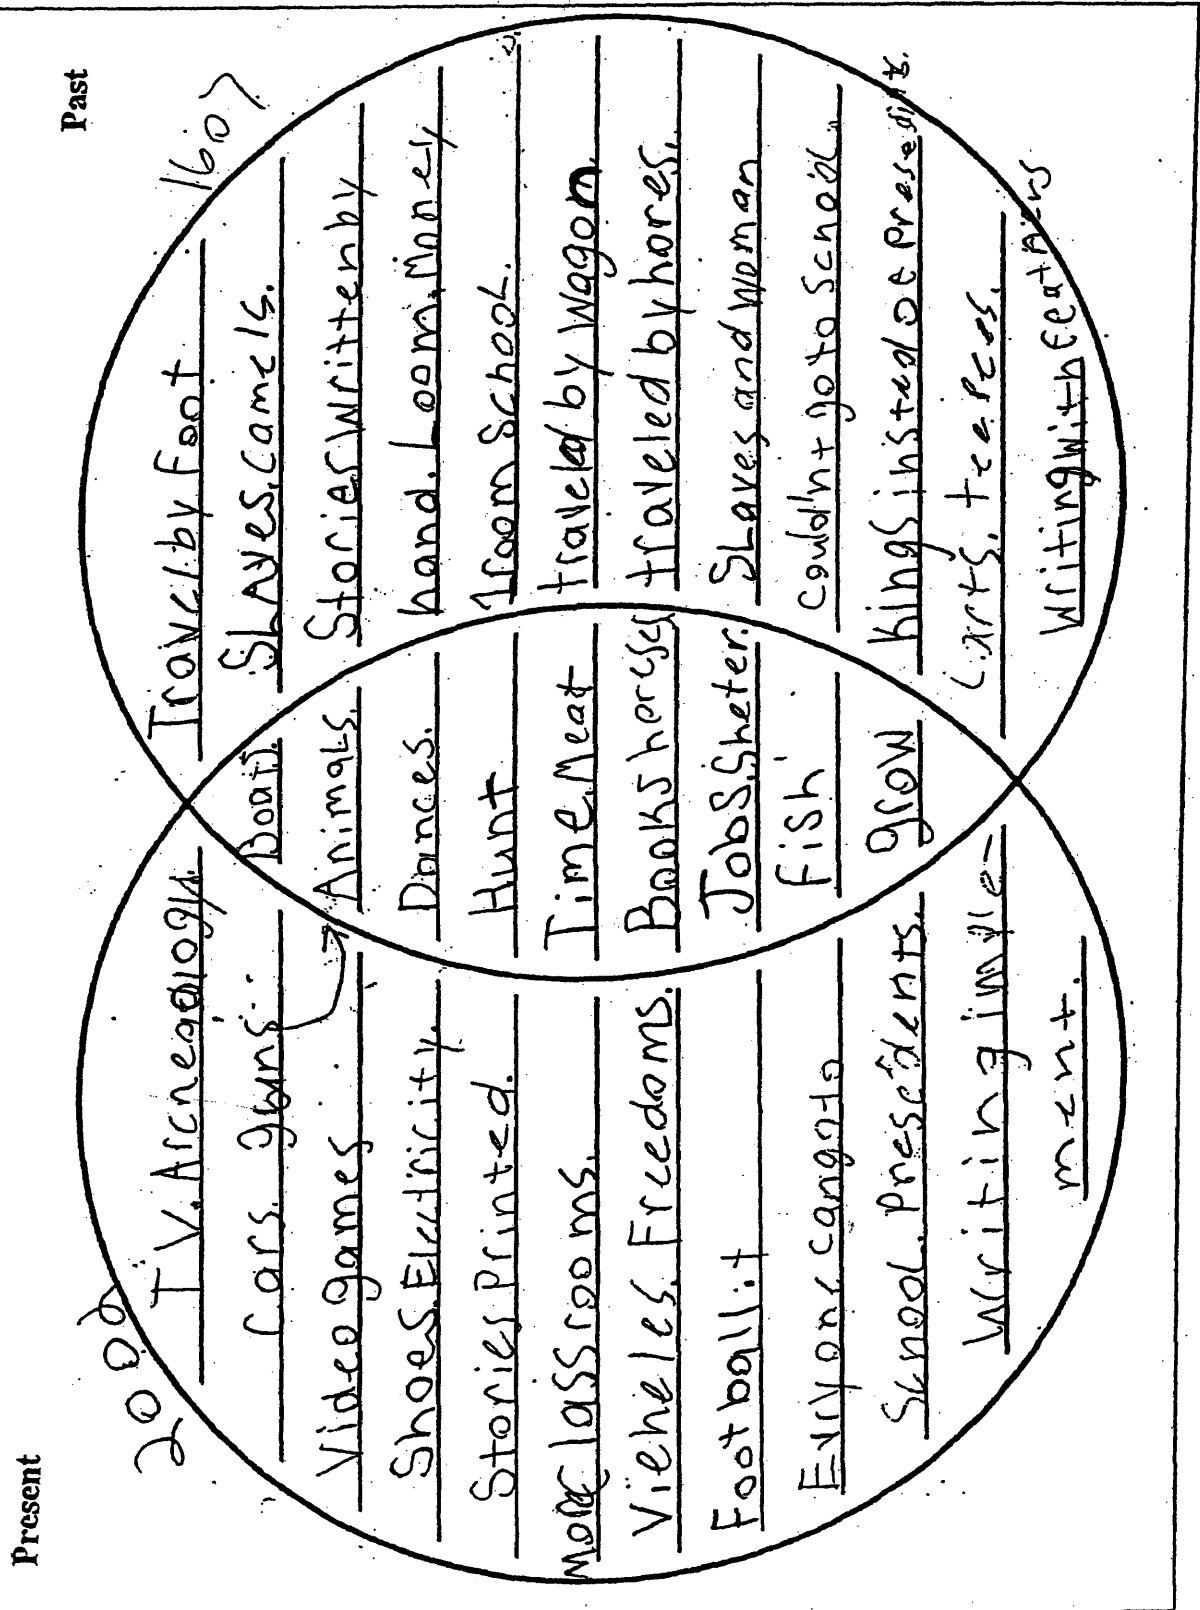 Present
Past
2002
1607
T.V. Arcneaology.
Cars. guns.
Video games
Shoes. Electricity.
Stories Printed.
more classrooms.
Vieheles. Freedoms.
Football.
Evryone can go to
School. Presedents.
Writing imple-
ment.
Boats.
Animals.
Dances.
Hunt
Time. Meat
Books horses
Jobs. Sheter.
Fish
grow
Travel by Foot
Slaves. Camels.
Stories written by
hand. Loom. Money
1 room School.
traveled by wagon.
traveled by hores.
Slaves and woman
could'n t go to school.
Kings insted of Presedints.
Carts. teepees.
writing with feathers